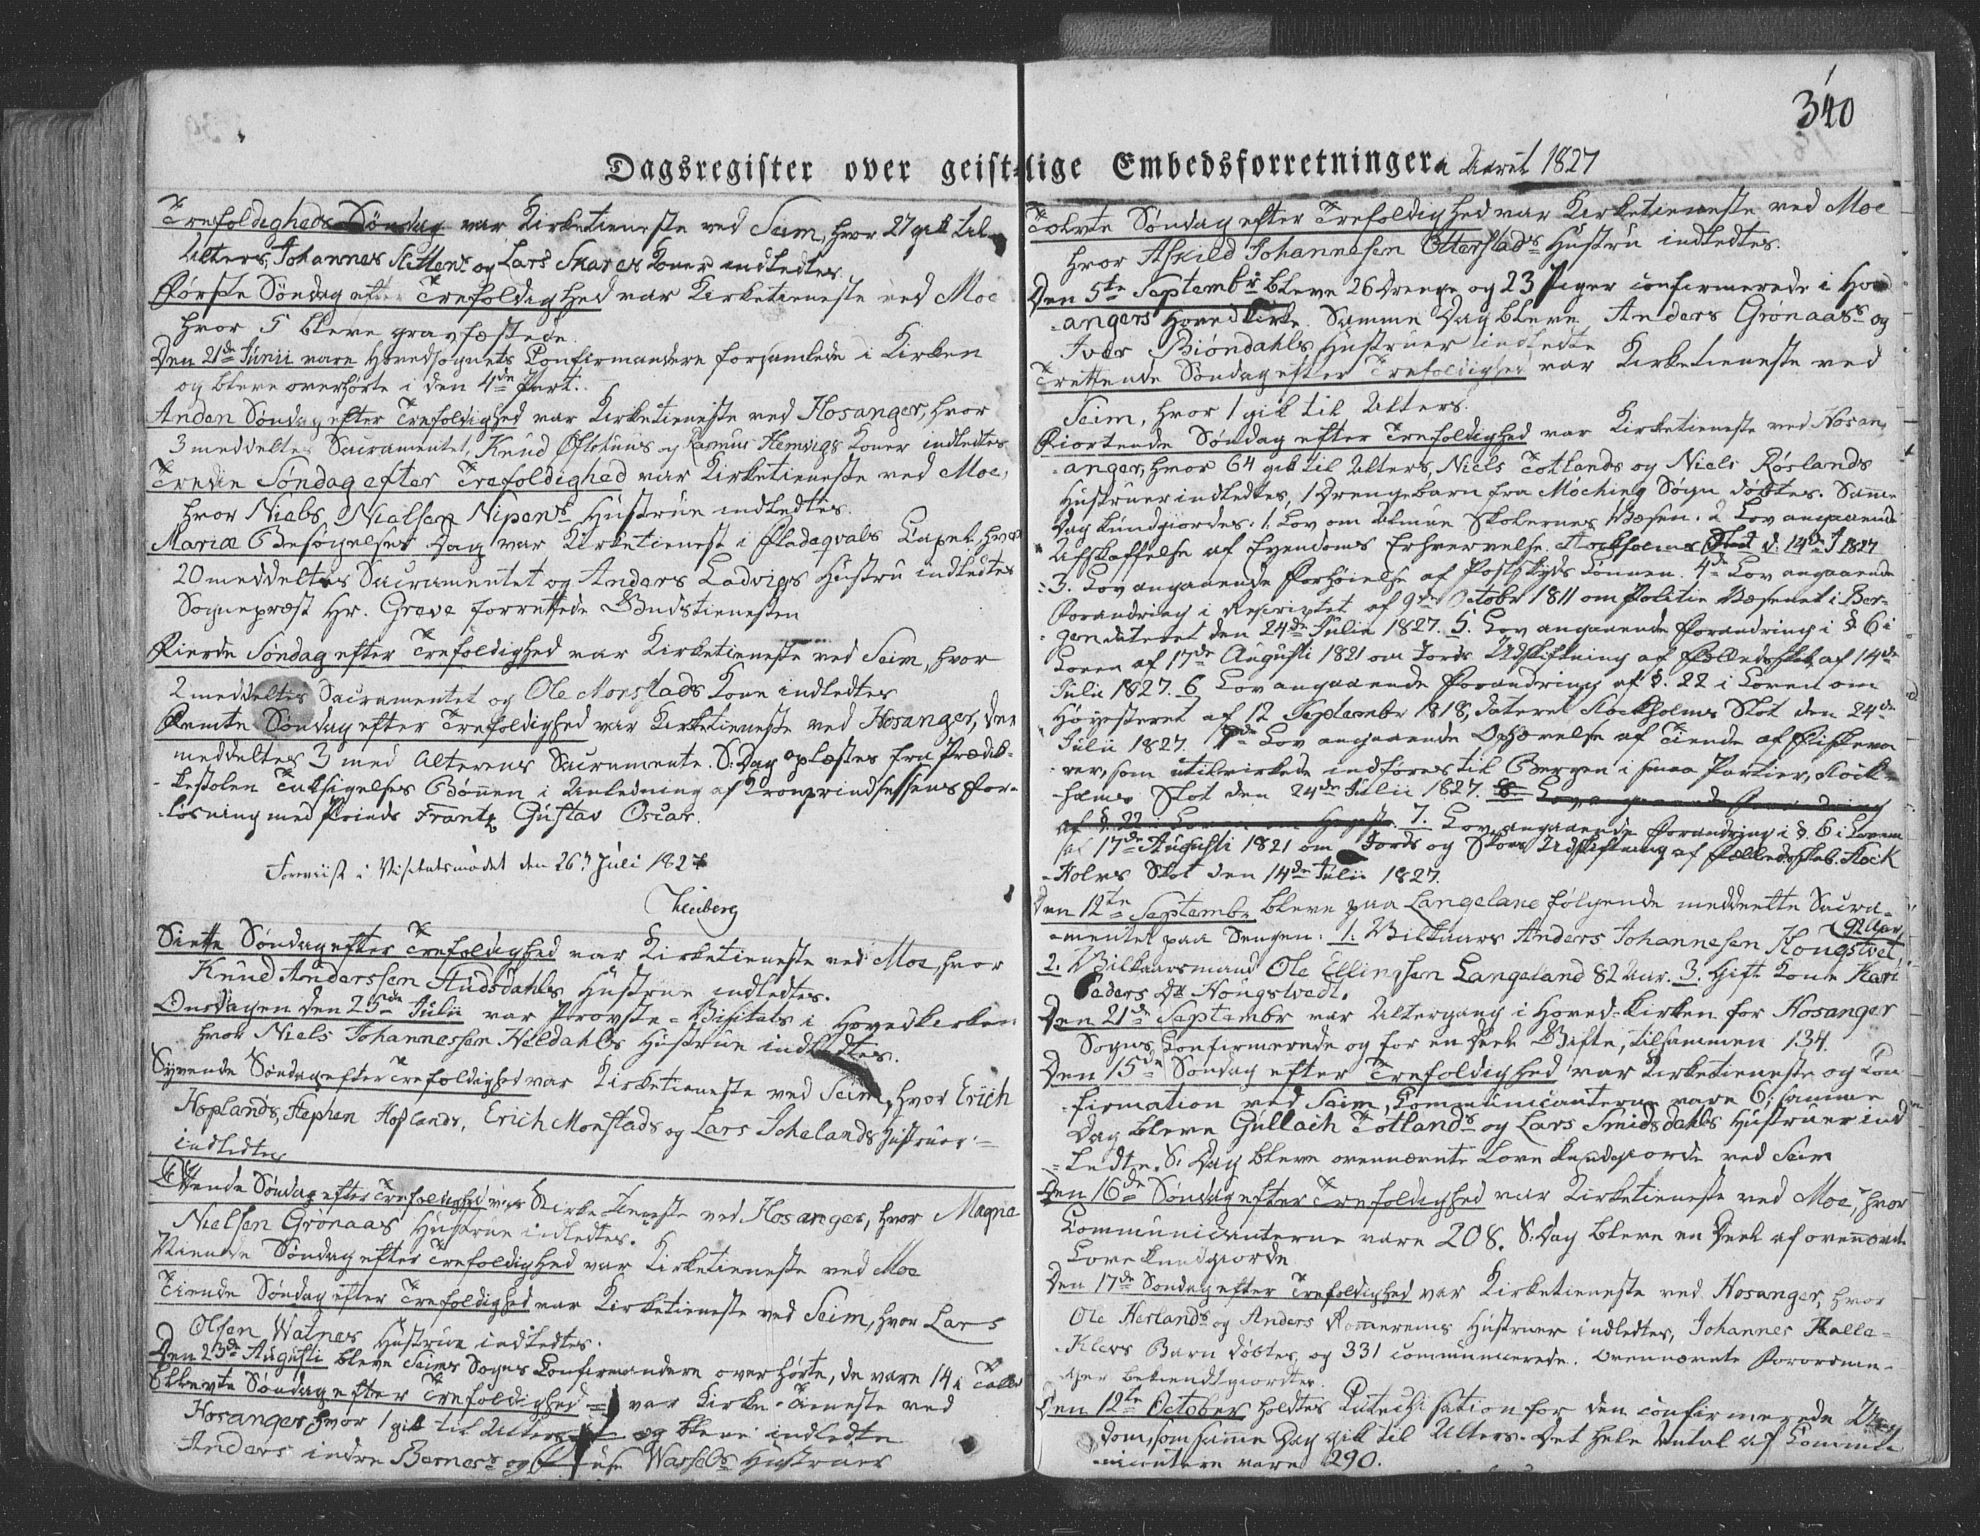 340
Dagsregister over geistlige Embedsforretninger. Aaret 1827
Trefoldigheds Søndag var Kirketieneste ved Seim, hvor 27 gik til
Alters, Johannes Slettens og Lars Skares Koner indledtes.
Første Søndag efter Trefoldighed var Kirketieneste ved Moe
hvor 5 bleve gravfæstede.
Den 21de Junii vare Hovedsognets Confirmandere forsamlede i Kirken
og bleve overhørte i den 4de Part.
Anden Søndag efter Trefoldighed var Kirketieneste ved Hosanger, hvor
3 meddeltes Sacramentet, Knud og Rasmus Hemvigs Koner indledtes
Tredie Søndag efter Trefoldighed var Kirketieneste ved Moe,
hvor Niels Nielsen Nipens Hustrue indledtes.
Mariæ Besøgelses Dag var Kirketienest i Fladeqvals Capel, hvor
20 meddeltes Sacramentet og Anders Ladvigs Hustru indledtes
Sognepræst Hr. Greve forrettede Gudstienesten
Fierde Søndag efter Trefoldighed var Kirketieneste ved Seim, hvor
2 meddeltes Sacramentet og Ole Monstads Kone indledtes
Femte Søndag efter Trefoldighed var Kirketieneste ved Hosanger, der
meddeltes 3 med Alterens Sacramente. S: Dag oplæstes fra Prædi-
kestolen Taksigelses Bønnen i Anledning af Kronprindsessens For-
løsning med Prinds Frantz Gustav Oscar.
Foreviist i Visitatsmødet den 26 Juli 1827
Siette Søndag efter Trefoldighed var Kirketieneste ved Moe, hvor
Knud Anderssen Hudsdahls Hustrue indledtes.
Onsdagen den 25de Julii var Provste-Visitats i Hovedkirken
hvor Niels Johannessen Heldahls Hustrue indledtes.
Syvende Søndag efter Trefoldighed var Kirketieneste ved Seim, hvor Erich
Hoplands, Stephen Hoplands, Erich Monstads og Lars Hustruer
indledtes
Ottende Søndag efter Trefoldighed var Kirke Tieneste ved Hosanger, hvor Magne
Nielsen Grønaas Hustrue indledtes.
Niende Søndag efter Trefoldighed var Kirketieneste ved Moe
Tiende Søndag efter Trefoldighed var Kirketieneste ved Seim, hvor Lars
Olsen Watnes Hustrue indledtes.
Den 23de Augusti bleve Seims Sogns Confirmandere overhørte, de vare 14 i Tallet
Ellevte Søndag efter Trefoldighed var Kirke-Tieneste ved
Hosanger, hvor 1 gik til Alters og bleve indledte
Anders indre Bernes og Hustruer
Tolvte Søndag efter Trefoldighed var Kirketieneste ved Moe
hvor Askild Johannesen Otterstads Hustru indledtes.
Den 5te Septembr bleve 26 Drenge og 23 Piger confirmerede i Hos-
angers Hovedkirke. Samme Dag bleve Anders Grønaas og
Iver Biøndahls Hustruer indledte
Trettende Søndag efter Trefoldighed var Kirketieneste ved
Seim, hvor 1 gik til Alters.
Fiortende Søndag efter Trefoldighed var Kirketieneste ved Hosan-
anger, hvor 64 gik til Alters, Niels Totlands og Niels Røslands
Hustruer indledtes, 1 Drengebarn fra Sogn døbtes. Samme
Dag kundgiordes: 1. Lov om Almue Skolernes Væsen. 2 Lov angaaende
Afskaffelse af Eyendoms Erhvervelse. Stockholms Slot d. 14de J 1827
3. Lov angaaende Forhøielse af Postskyds Lønnen. 4de Lov angaaende
Forandring i Rescriptet af 9de Octobr 1811 om Politie Væsenet i Ber-
gen dateret den 24de Julii 1827. 5. Lov angaaende Forandring i § 6 i
Loven af 17de Augusti 1821 om Jords Udskiftning af Fælledsskab af 14de
Julii 1827. 6 Lov angaaende Forandring af §. 22 i Loven om
Høyesteret af 12 Septembr 1818, dateret Stockholms Slot den 24de
Julii 1827. 7de Lov angaaende Ophævelse af Tiende af Fiskeva-
rer, som utilvirkede indføres til Bergen i smaa Partier, Stock-
holms Slot den 24de Julii 1827. 8. Lov angaaende Forandring
af §. 22 i Loven om Høyest. 7. Lov angaaende Forandring i §. 6 i Loven
af 17de Augusti 1821 om Jords og Skovs Udskiftning af Fælledsskab. Stock
holms Slot den 14de Julii 1827.
Den 12te Septembr bleve paa Langeland følgende meddeelte Sacra-
mentet paa Sengen: 1. Vilkaars Anders Johannesen Hougstvet, 92 Aar,
2. Vilkaarsmand Ole Ellingsen Langeland 82 Aar. 3. Gift Kone Kari
Peders Dtr Hougstvedt.
Den 21de Septembr var Altergang i Hoved-Kirken for Hosanger
Sogns Confirmerede og for en Deel Gifte, tilsammen 134.
Den 15de Søndag efter Trefoldighed var Kirketieneste og Con-
firmation ved Seim, Communicanterne vare 6: samme
Dag bleve Gullach Totlands og Lars Smidsdahls Hustruer ind
ledte. S: Dag bleve ovennævnte Love kundgiorde ved Seim
Den 16de Søndag efter Trefoldighed var Kirketieneste ved Moe, hvor
Communicanterne vare 208. S: Dag bleve en Deel af ovennævnte
Love kundgiorde
Den 17de Søndag efter Trefoldighed var Kirketieneste ved Hosanger, hvor
Ole Herlands og Anders Hustruer indledtes, Johannes Halle-
Barn døbtes, og 331 communicerede. Ovennævnte Forordnin-
ger bekiendtgiordtes.
Den 12te October holdtes Catechisation for den confirmerede Ung-
dom, som samme Dag gik til Alters. Det hele Antal af Commu-
nicantere vare 290.